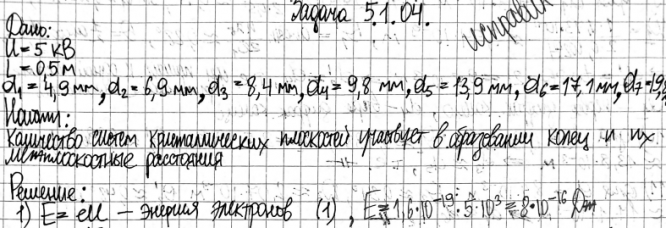 Задача 5.1.04.
исправил
Дано:
U = 5 кВ
L = 0,5 м
d₁ = 4,9 мм, d₂ = 6,9 мм, d₃ = 8,4 мм, d₄ = 9,8 мм, d₅ = 13,9 мм, d₆ = 17,1 мм, d₇ =
Найти:
количество систем кристаллических плоскостей участвует в образовании колец и их
межплоскостные расстояния
Решение:
1) E = eU — энергия электронов (1), E = 1,6·10⁻¹⁹·5·10³ = 8·10⁻¹⁶ Дж